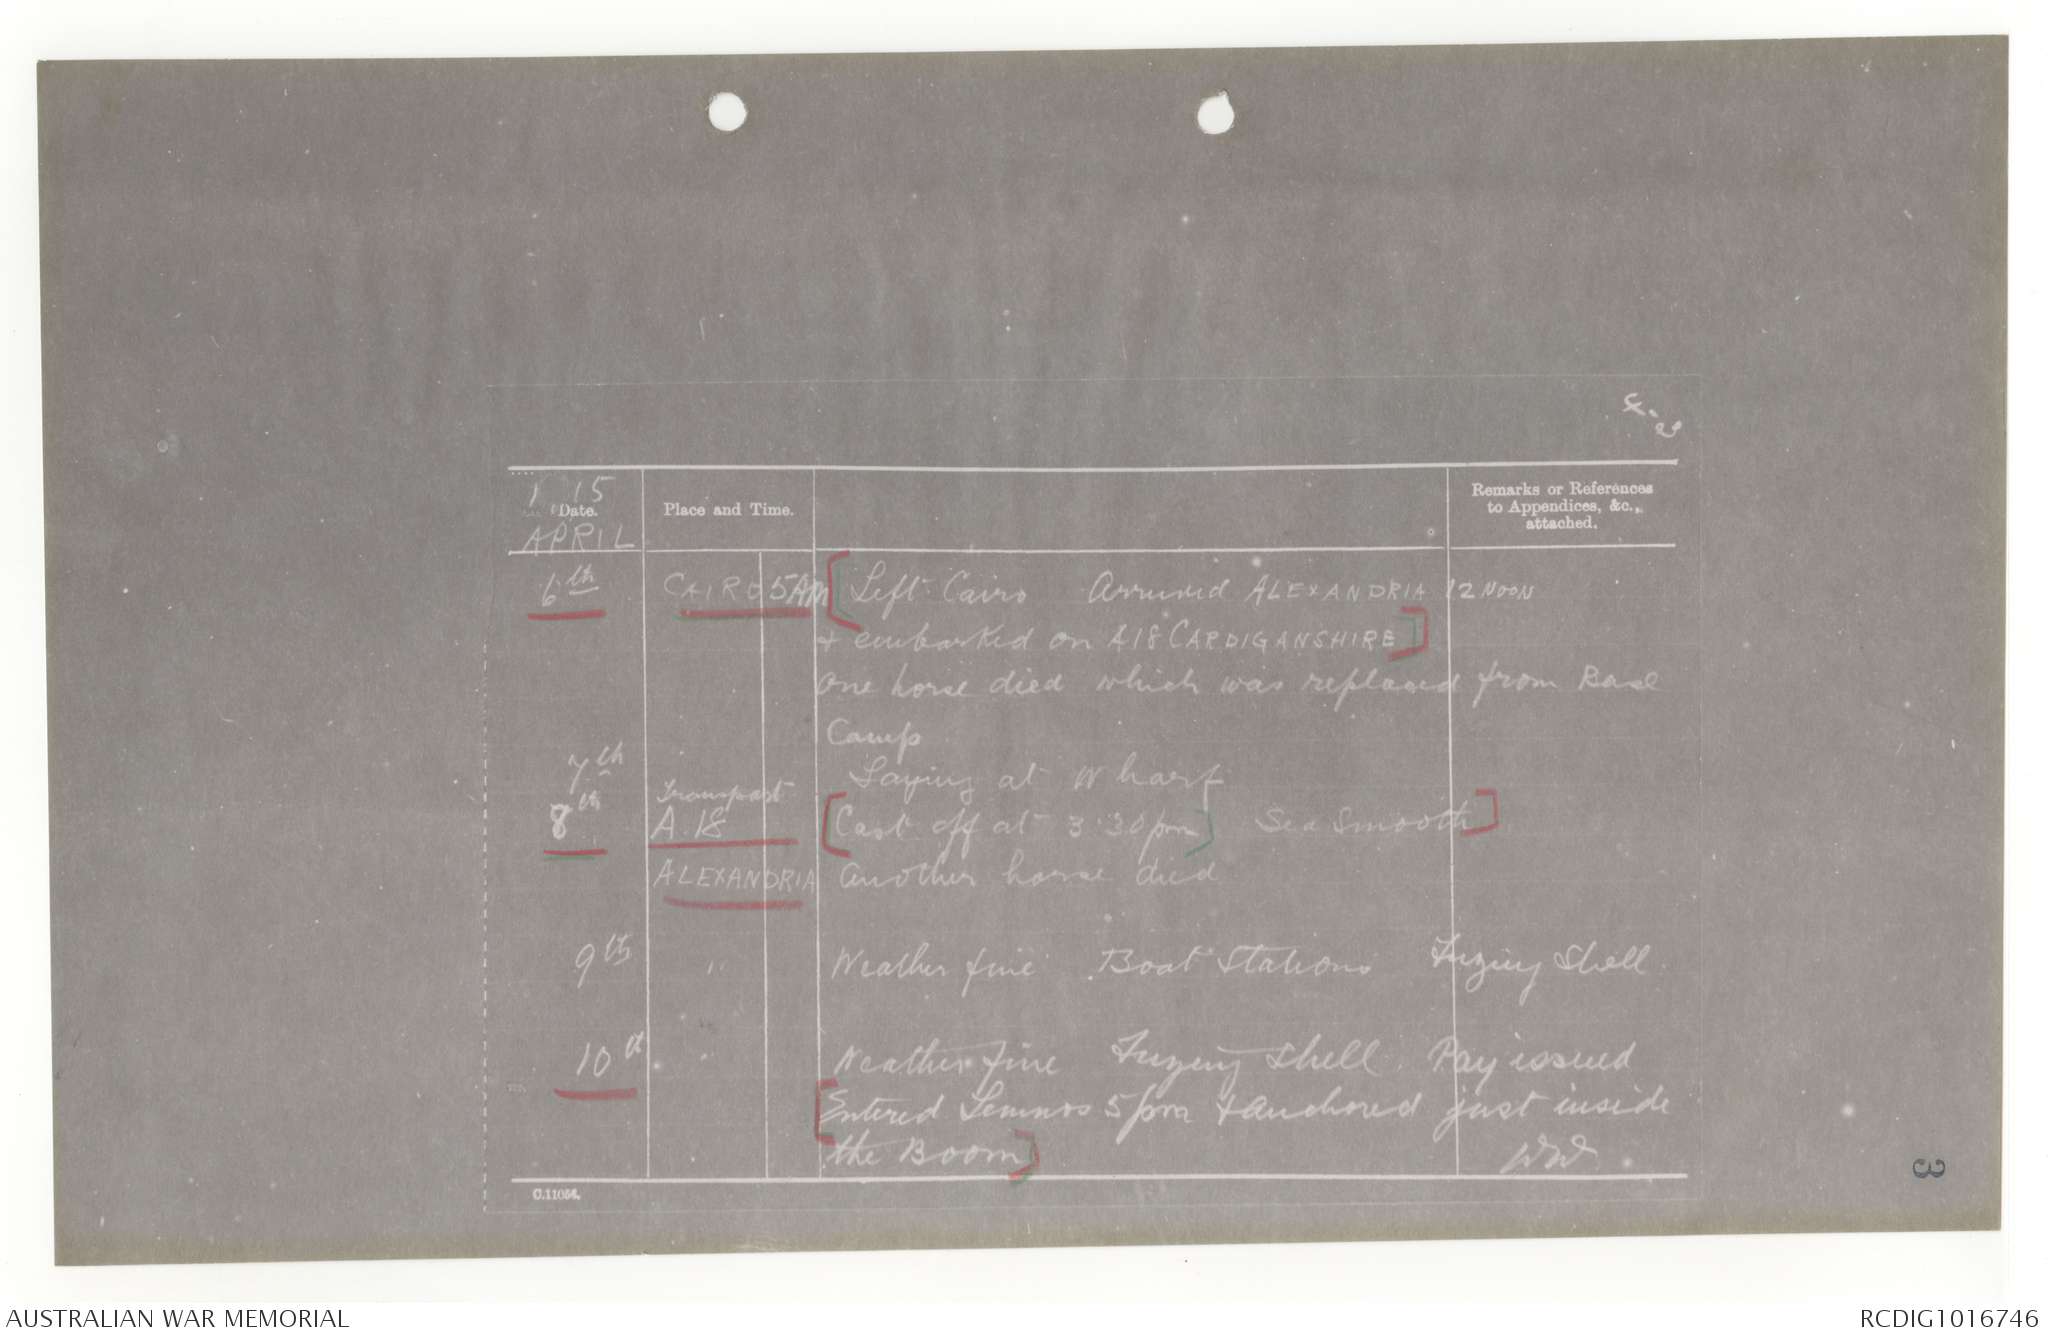 15
Date.
Place and Time.
Remarks or References
to Appendices, &c.,
attached.
APRIL
6th CAIRO 5AM Left Cairo Arrived ALEXANDRIA 12 NOON
+ embarked on A18 CARDIGANSHIRE
One horse died which was replaced from Base
Camp
7th Laying at Wharf
8th Transport A.18 Cast off at 3.30pm Sea Smooth
ALEXANDRIA Another horse died
9th " Weather fine Boat Stations Fuzing Shell
10th " Weather fine Fuzing Shell. Pay issued
Entered Lemnos 5pm + anchored just inside
the Boom
C.11056.
3
AUSTRALIAN WAR MEMORIAL
RCDIG1016746